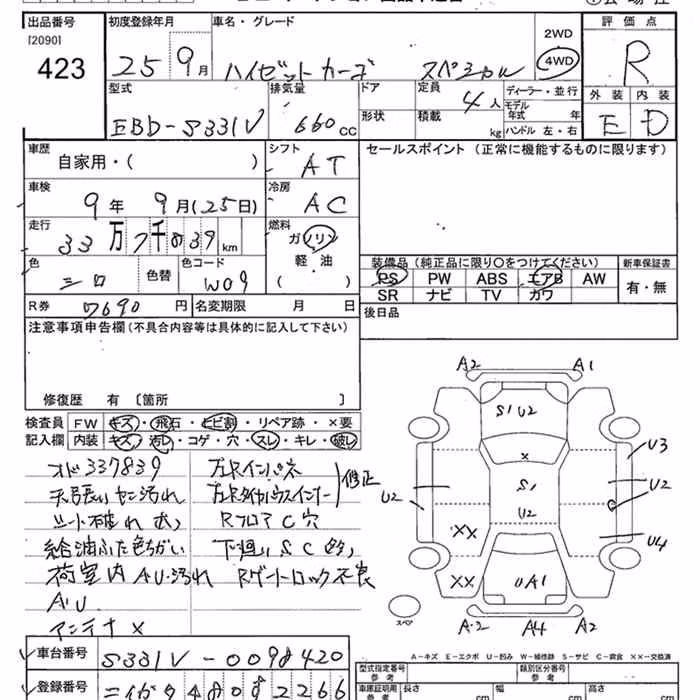 出品番号 初度登録年月 車名・グレード 2WD 評価点
[2090] 25 9月 ハイゼットカーゴ スペシャル 4WD R
423
型式 排気量 ドア 定員 4人 ディーラー・並行 外装 内装
EBD-S331V 660cc 形状 積載 kg モデル年式 年 E D
ハンドル 左・右
車歴 シフト セールスポイント (正常に機能するものに限ります)
自家用・( ) AT
車検 冷房
9年 9月(25日) AC
走行 燃料
33万7千839km ガソリン
軽・油
( )
色 色替 色コード 装備品 (純正品に限り○をつけてください) 新車保証書
シロ W09 PS PW ABS エアB AW 有・無
SR ナビ TV カワ
R券 7690円 名変期限 月 日 後日品
注意事項申告欄(不具合内容等は具体的に記入して下さい)
修復歴 有 〔箇所 〕
検査員 FW キズ・飛石・ヒビ割・リペア跡・×要
記入欄 内装 キズ・汚レ・コゲ・穴・スレ・キレ・破レ
オド337839 左Rインパネ
天張りセン汚れ 左Rタイヤハウスインナー 修正
シート破れ Rフロア C穴
給油ふた色ちがい 下廻り S C
荷室内AU.汚れ Rゲートロック不良
A.U
アンテナ×
A2 A1
S1 U2
×
S1
U2
U2
U3
U2
U4
XX
XX
UA1
スペア
A2 A4 A2
A-キズ E-エクボ U-凹み W-補修跡 S-サビ C-腐食 XX-交換済
車台番号 S331V-0098420
型式指定番号 参考 類別区分番号 参考
登録番号 480 2266
車庫証明用 参考 長さ cm 幅 cm